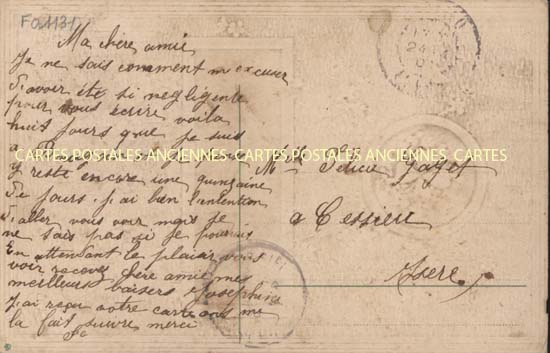 FA1131
Ma chère amie
Je ne sais comment m excuser
d'avoir été si negligente
pour vous écrire voila
huit jours que je suis
a
y reste encore une quinzaine
de jours j ai bien l'intention
d'aller vous voir mais je
ne sais pas si je pourrais
En attendant le plaisir vous
voir recevez chère amie mes
meilleurs baisers Josephine
J'ai reçu votre carte on me
la fait suivre merci
CARTES POSTALES ANCIENNES CARTES POSTALES ANCIENNES CARTES
Mlle Félicie
a Cessieu
Isère